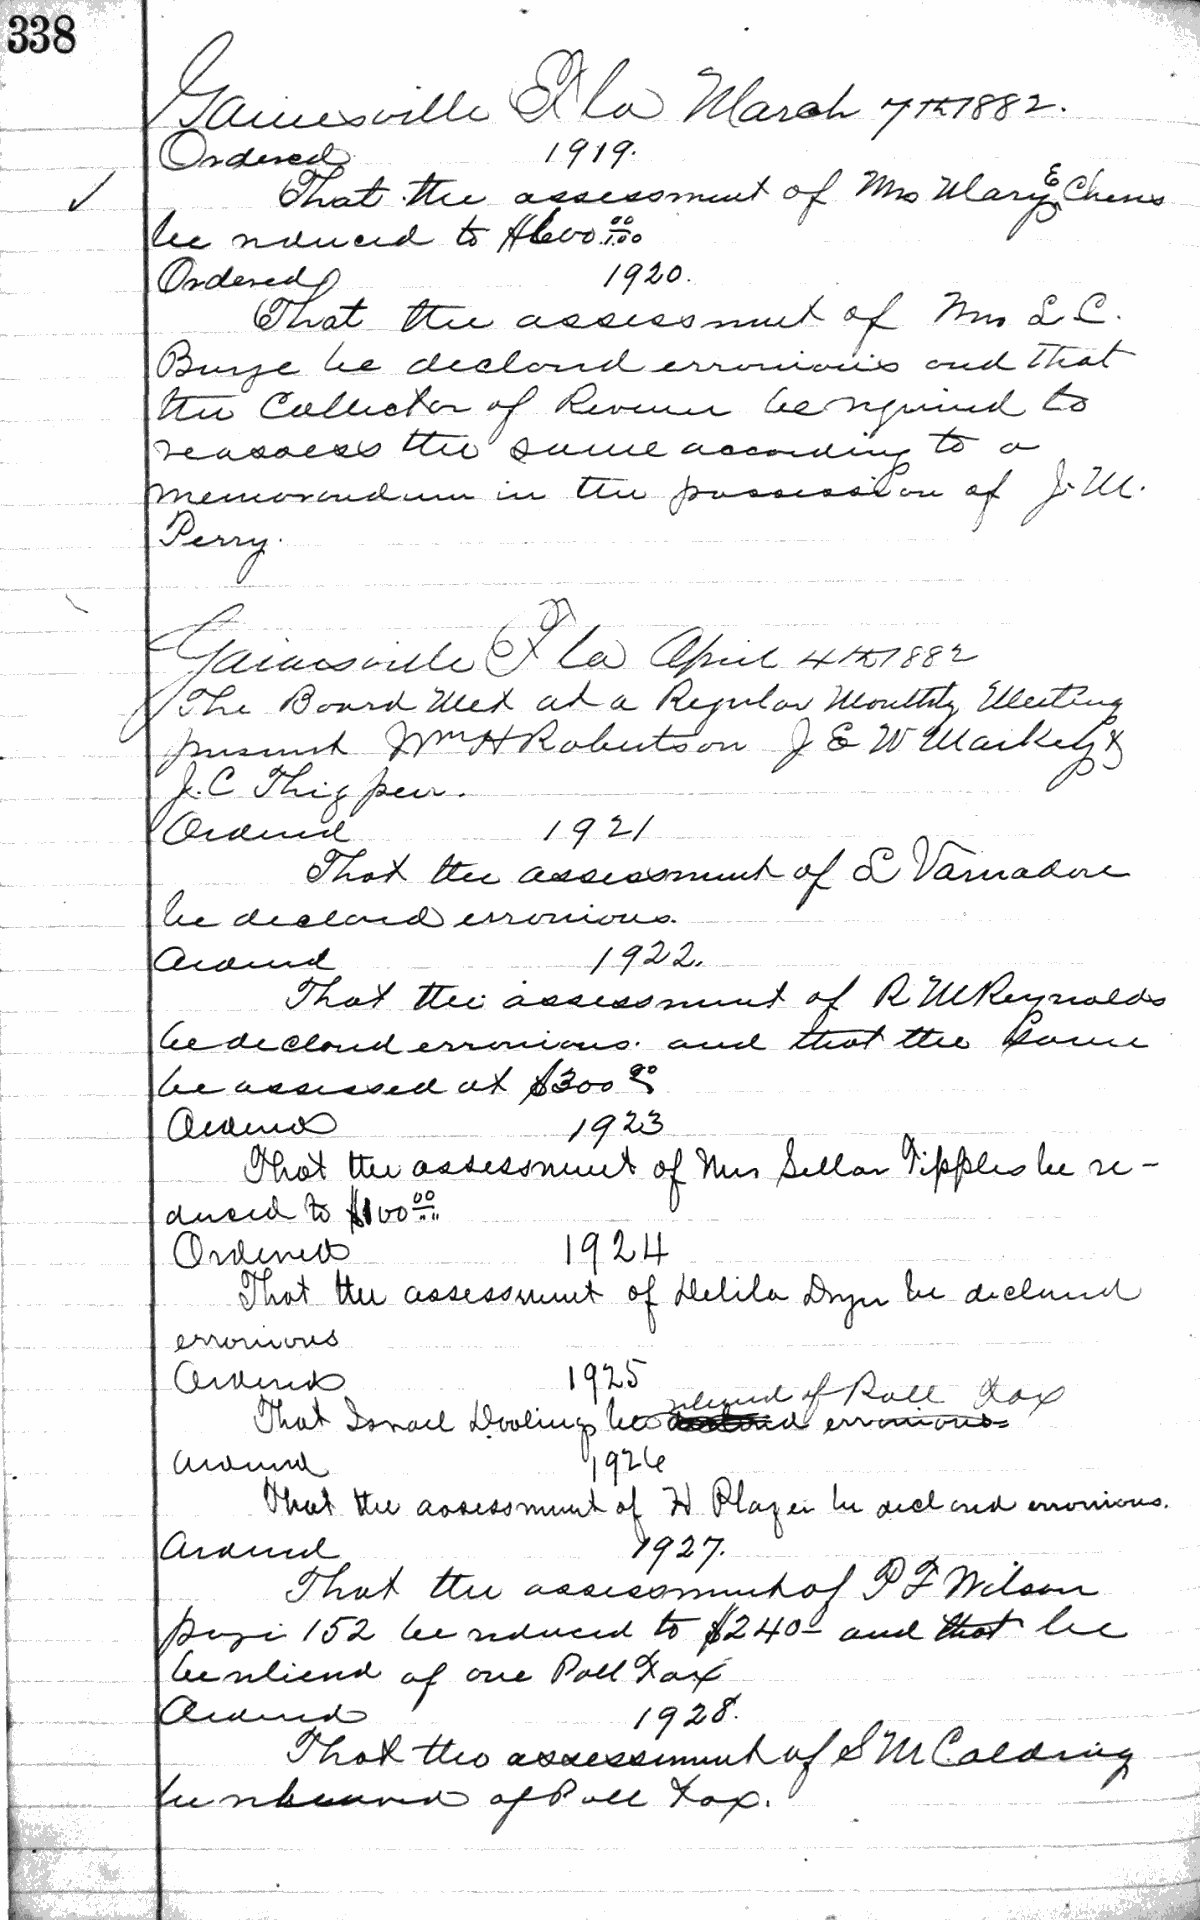 338
Gainesville Fla March 7th 1882.
Ordered 1919.
✓ That the assessment of Mrs Mary E
be reduced to $600 00/100
Ordered 1920.
That the assessment of Mrs L C.
Burge be declared erronious and that
the Collector of Revenue be required to
reassess the same according to a
memorandum in the possession of J. M.
Perry.
Gainesville Fla April 4th 1882
The Board Met at a Regular Monthly Meeting
present Wm H Robertson J E W Markey &
J. C Thigpen.
Ordered 1921
That the assessment of L Varnadore
be declared erronious.
Ordered 1922.
That the assessment of R M Reynolds
be declared erronious. and that the Same
be assessed at $300 00
Ordered 1923
That the assessment of Mrs Sellar Tipples be re-
duced to $100 00
Ordered 1924
That the assessment of Delila Dryer be declared
erronious
Ordered 1925
relieved of Poll Tax
That Israel Dooling be declared erronious
Ordered 1926
That the assessment of H Player be declared erronious.
Ordered 1927.
That the assessment of P F Wilson
page 152 be reduced to $240- and that he
be reliend of one Poll Tax
Ordered 1928.
That the assessment of S M Colding
be relieved of Poll Tax.